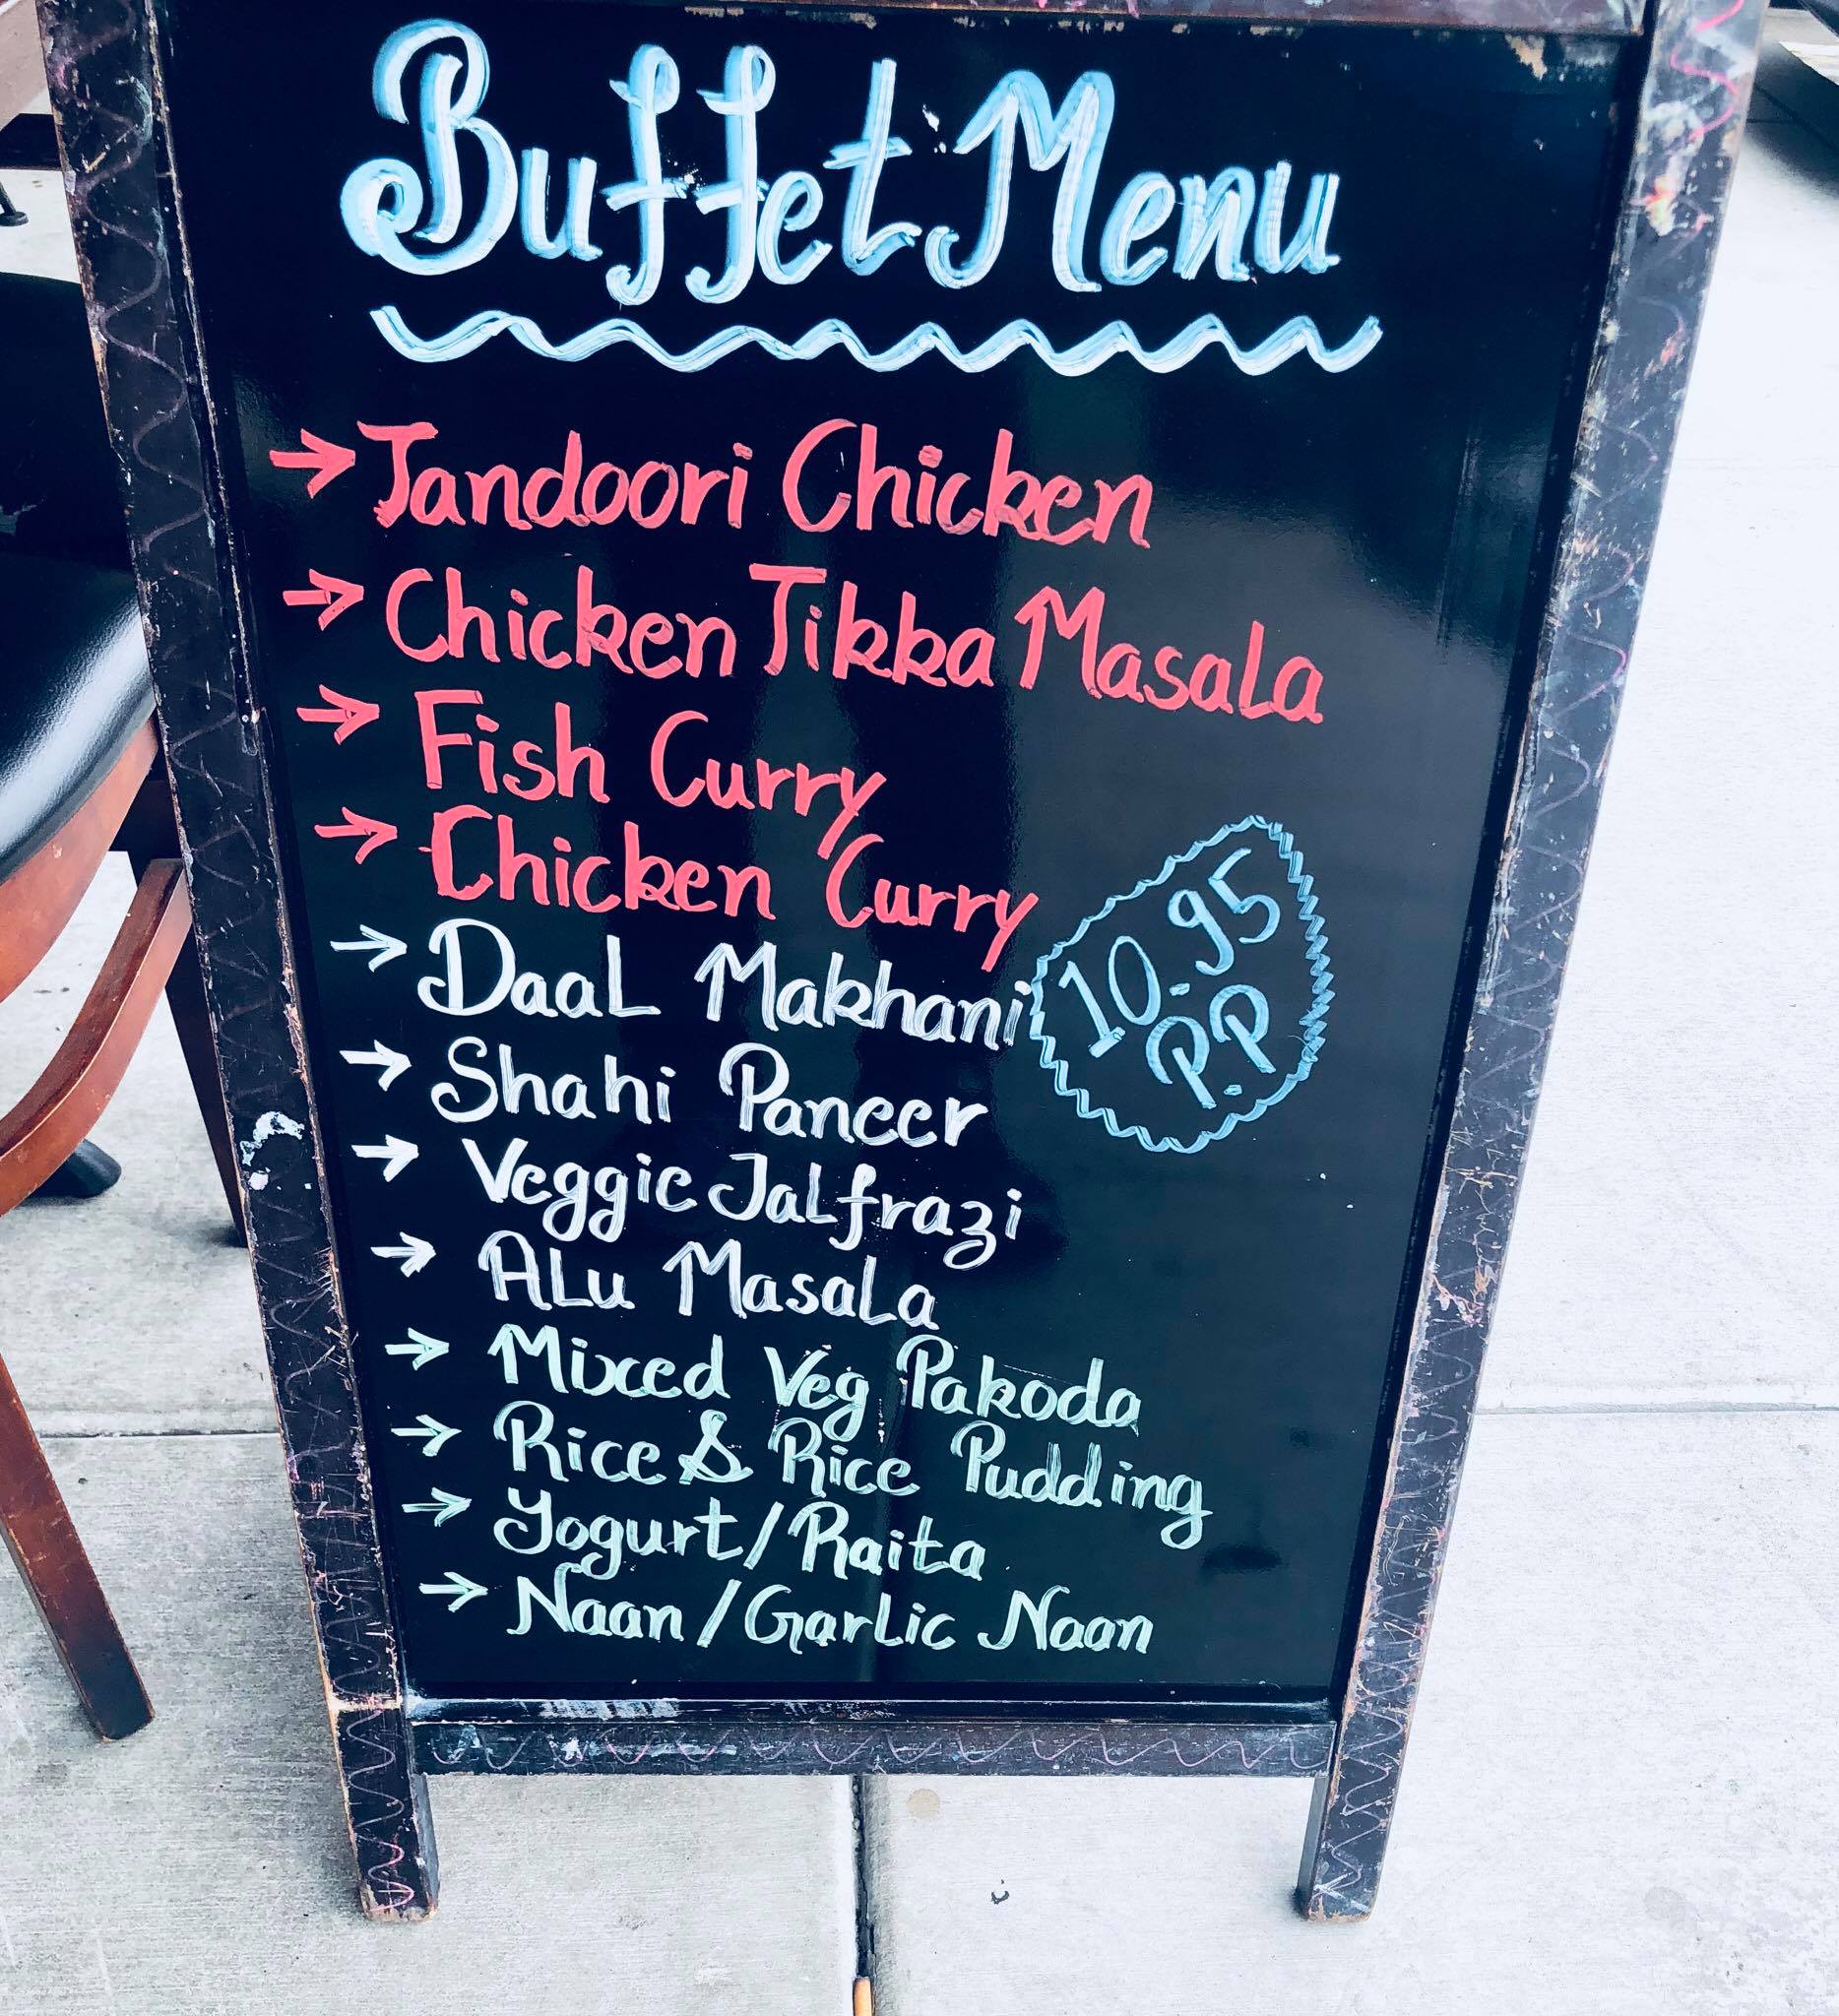 Buffet Menu
→ Tandoori Chicken
→ Chicken Tikka Masala
→ Fish Curry
→ Chicken Curry
→ Daal Makhani
10.95
P.P
→ Shahi Paneer
→ Veggie Jalfrazi
→ ALu Masala
→ Mixed Veg Pakoda
→ Rice & Rice Pudding
→ Yogurt/Raita
→ Naan/Garlic Naan